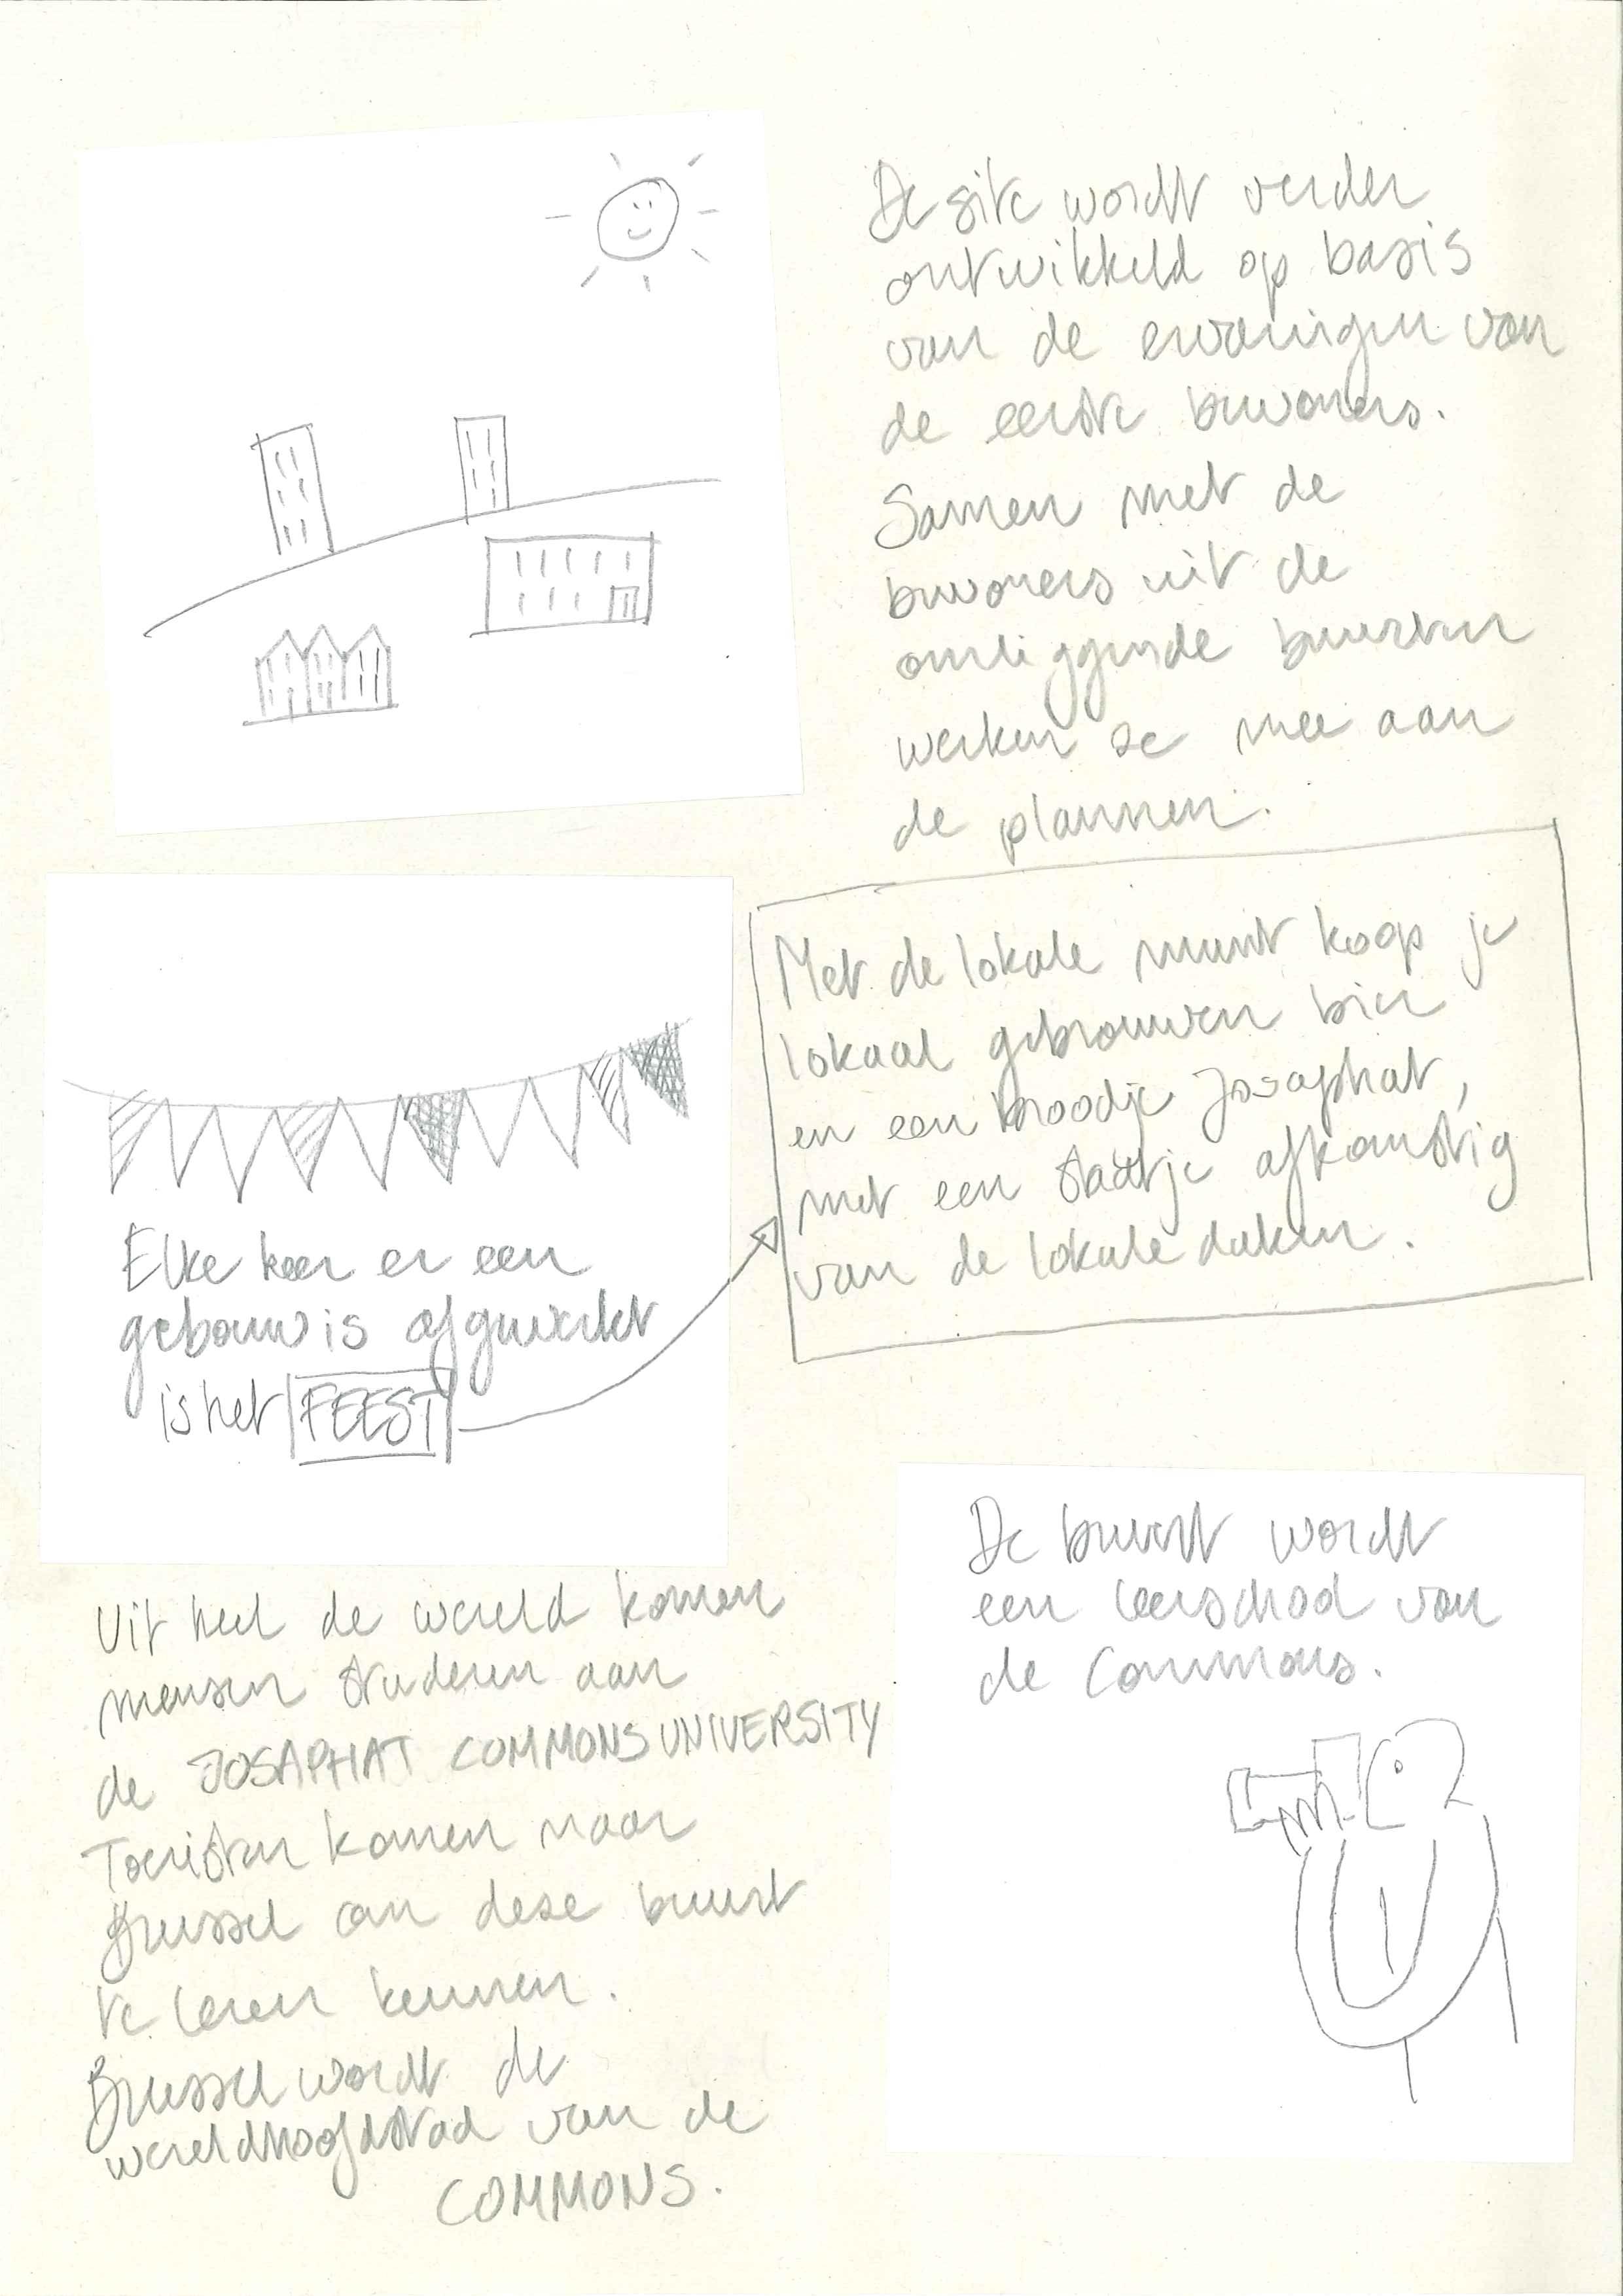 De site wordt verder
ontwikkeld op basis
van de ervaringen van
de eerste bewoners.
Samen met de
bewoners uit de
omliggende buurten
werken ze mee aan
de plannen.
Elke keer er een
gebouw is afgewerkt
is het FEEST
Met de lokale munt koop je
lokaal gebrouwen bier
en een broodje Josaphat,
met een slaatje afkomstig
van de lokale daken.
Uit heel de wereld komen
mensen studeren aan
de JOSAPHAT COMMONS UNIVERSITY
Toeristen komen naar
Brussel om deze buurt
te leren kennen.
Brussel wordt de
wereldhoofdstad van de
COMMONS.
De buurt wordt
een leerschool van
de Commons.